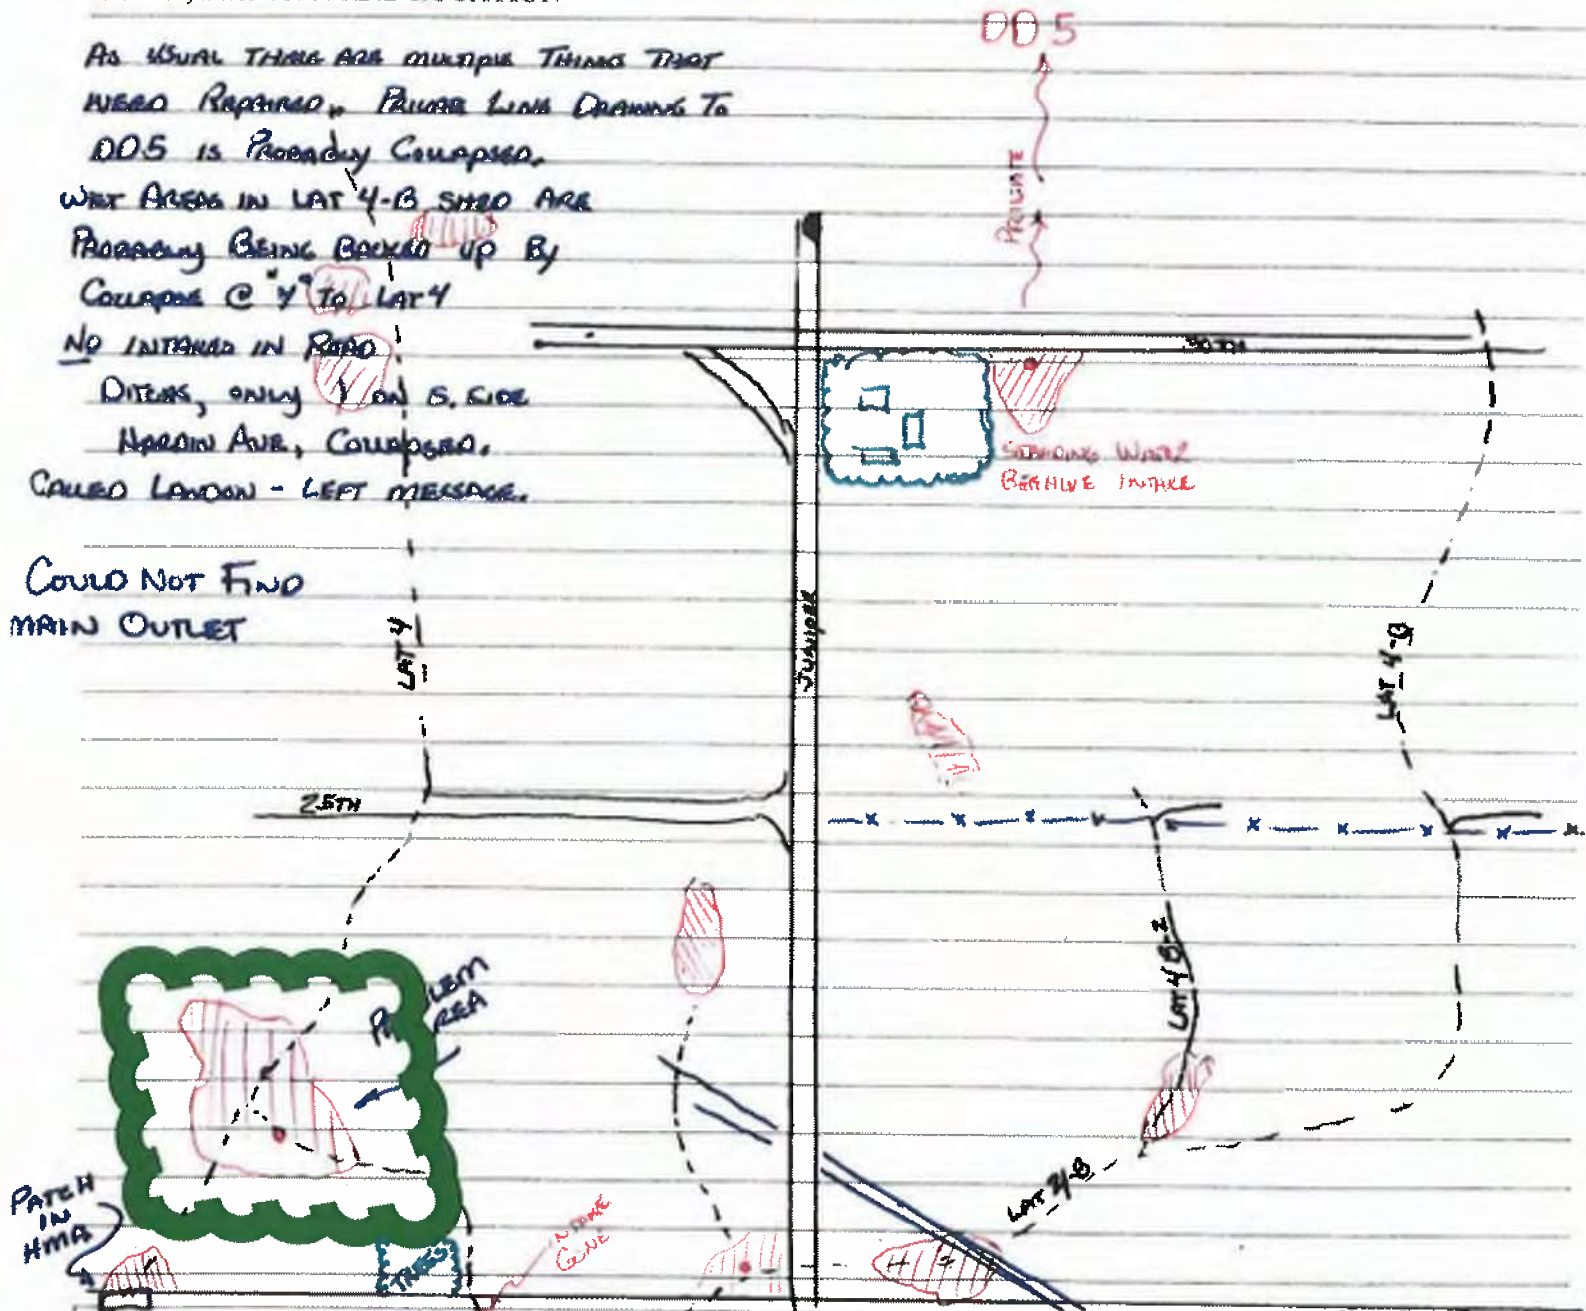 AS USUAL THERE ARE MULTIPLE THINGS THAT
NEED REPAIRED. PRIVATE LINE DRAINING TO
DD5 IS PROBABLY COLLAPSED.
WET AREAS IN LAT 4-B SHED ARE
PROBABLY BEING BACKED UP BY
COLLAPSE @ "Y" TO LAT 4
NO INTAKES IN ROAD
DITCHES, ONLY 1 ON S. SIDE
HARDIN AVE, COLLAPSED.
CALLED LANDON - LEFT MESSAGE.
COULD NOT FIND
MAIN OUTLET
DD5
PRIVATE
30TH
STANDING WATER
BEEHIVE INTAKE
JUNIPER
LAT 4
LAT 4-B
25TH
LAT 4B-2
LAT 4-B
PATCH
IN
HMA
TREES
INTAKE
GONE